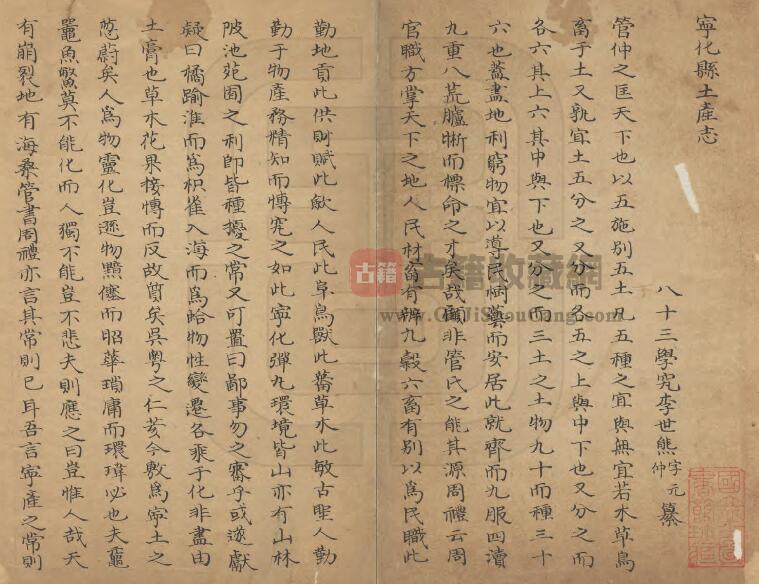 寧化縣土產志
八十三學究李世熊字元仲纂
管仲之匡天下也以五施別五土凡五種之宜與無宜若水草鳥
畜于土又孰宜土五分之又分而各五之上與中下也又分之而
各六其上六其中與下也又分之而三土之土物九十而種三十
六也蓋盡地利窮物宜以導民樹藝而安居此就齊而九服四瀆
九重八荒臚晰而標命之才矣哉顧非管氏之能其源周禮云周
官職方掌天下之地人民材畜有辨九穀六畜有別以為民職此
勤地貢此供則賦此斂人民此阜鳥獸此蕃草木此敏古聖人勤
勤于物產務精知而慱究之如此寧化彈九環境皆山亦有山林
陂池苑囿之利卽皆種擾之常又可置曰鄙事勿之審乎或遂獻
疑曰橘踰淮而為枳雀入海而為蛤物性變遷各乘于化非盡由
土膏也草木花果接慱而反故質矣吳粵之仁芸今敷為寧土之
葱蔚矣人為物靈化豈遜物黠僿而昭華瑣庸而環瑋必也夫黿
鼉魚鱉莫不能化而人獨不能豈不悲夫則應之曰豈惟人哉天
有崩裂地有海桑管書周禮亦言其常則已耳吾言寧產之常則
古籍
古籍收藏網
www.GuJiShouCang.com